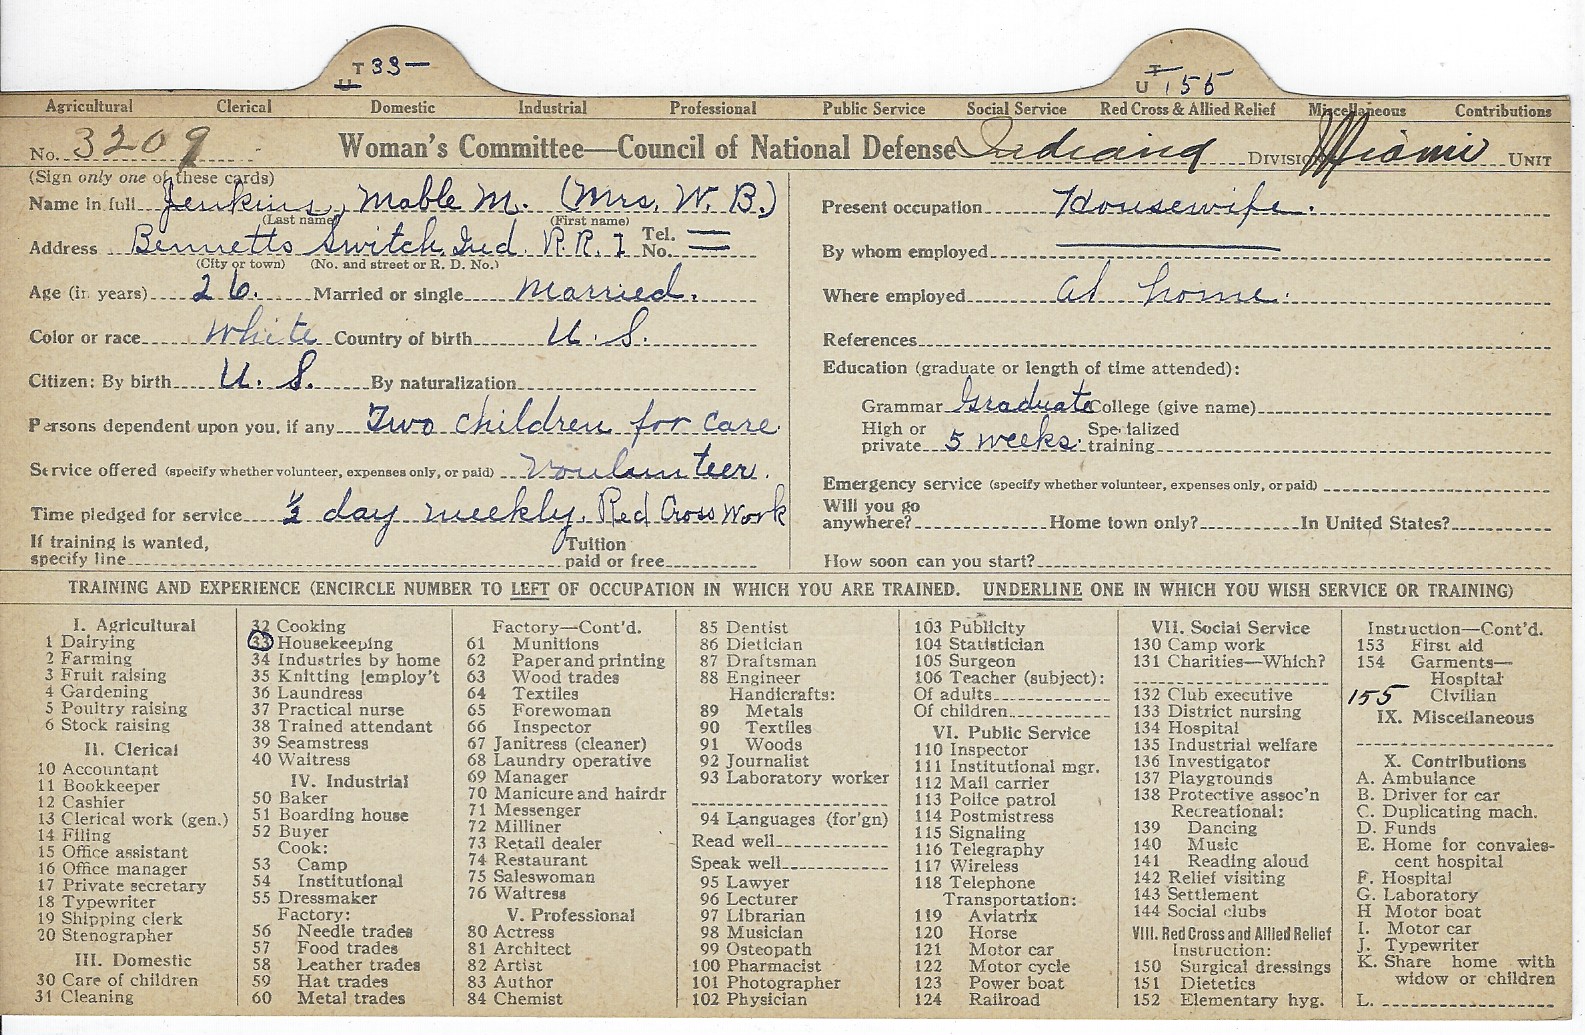 T 33 —
U
T
U 155
Agricultural Clerical Domestic Industrial Professional Public Service Social Service Red Cross & Allied Relief Miscellaneous Contributions
No. 3209 Woman's Committee—Council of National Defense Indiana DIVISION Miami UNIT
(Sign only one of these cards)
Name in full Jenkins, Mable M. (Mrs. W. B.)
(Last name) (First name)
Address Bennetts Switch, Ind. R.R. 1 Tel. No. =
(City or town) (No. and street or R. D. No.)
Age (in years) 26. Married or single married.
Color or race White Country of birth U. S.
Citizen: By birth U. S. By naturalization
Persons dependent upon you, if any Two children for care
Service offered (specify whether volunteer, expenses only, or paid) Voulunteer.
Time pledged for service ½ day weekly. Red Cross Work
If training is wanted, specify line Tuition paid or free
Present occupation Housewife.
By whom employed ——
Where employed at home.
References
Education (graduate or length of time attended):
Grammar Graduate College (give name)
High or private 5 weeks. Specialized training
Emergency service (specify whether volunteer, expenses only, or paid)
Will you go anywhere? Home town only? In United States?
How soon can you start?
TRAINING AND EXPERIENCE (ENCIRCLE NUMBER TO LEFT OF OCCUPATION IN WHICH YOU ARE TRAINED. UNDERLINE ONE IN WHICH YOU WISH SERVICE OR TRAINING)
I. Agricultural
1 Dairying
2 Farming
3 Fruit raising
4 Gardening
5 Poultry raising
6 Stock raising
II. Clerical
10 Accountant
11 Bookkeeper
12 Cashier
13 Clerical work (gen.)
14 Filing
15 Office assistant
16 Office manager
17 Private secretary
18 Typewriter
19 Shipping clerk
20 Stenographer
III. Domestic
30 Care of children
31 Cleaning
32 Cooking
33 Housekeeping
34 Industries by home
35 Knitting [employ't
36 Laundress
37 Practical nurse
38 Trained attendant
39 Seamstress
40 Waitress
IV. Industrial
50 Baker
51 Boarding house
52 Buyer
Cook:
53 Camp
54 Institutional
55 Dressmaker
Factory:
56 Needle trades
57 Food trades
58 Leather trades
59 Hat trades
60 Metal trades
Factory—Cont'd.
61 Munitions
62 Paper and printing
63 Wood trades
64 Textiles
65 Forewoman
66 Inspector
67 Janitress (cleaner)
68 Laundry operative
69 Manager
70 Manicure and hairdr
71 Messenger
72 Milliner
73 Retail dealer
74 Restaurant
75 Saleswoman
76 Waitress
V. Professional
80 Actress
81 Architect
82 Artist
83 Author
84 Chemist
85 Dentist
86 Dietician
87 Draftsman
88 Engineer
Handicrafts:
89 Metals
90 Textiles
91 Woods
92 Journalist
93 Laboratory worker
94 Languages (for'gn)
Read well
Speak well
95 Lawyer
96 Lecturer
97 Librarian
98 Musician
99 Osteopath
100 Pharmacist
101 Photographer
102 Physician
103 Publicity
104 Statistician
105 Surgeon
106 Teacher (subject):
Of adults
Of children
VI. Public Service
110 Inspector
111 Institutional mgr.
112 Mail carrier
113 Police patrol
114 Postmistress
115 Signaling
116 Telegraphy
117 Wireless
118 Telephone
Transportation:
119 Aviatrix
120 Horse
121 Motor car
122 Motor cycle
123 Power boat
124 Railroad
VII. Social Service
130 Camp work
131 Charities—Which?
132 Club executive
133 District nursing
134 Hospital
135 Industrial welfare
136 Investigator
137 Playgrounds
138 Protective assoc'n
Recreational:
139 Dancing
140 Music
141 Reading aloud
142 Relief visiting
143 Settlement
144 Social clubs
VIII. Red Cross and Allied Relief
Instruction:
150 Surgical dressings
151 Dietetics
152 Elementary hyg.
Instruction—Cont'd.
153 First aid
154 Garments—
Hospital
155 Civilian
IX. Miscellaneous
X. Contributions
A. Ambulance
B. Driver for car
C. Duplicating mach.
D. Funds
E. Home for convales-
cent hospital
F. Hospital
G. Laboratory
H Motor boat
I. Motor car
J. Typewriter
K. Share home with
widow or children
L.